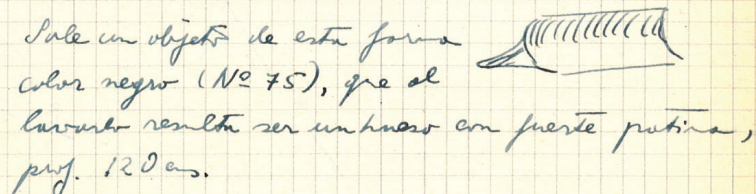 Sale un objeto de esta forma
color negro (Nº 75), que al
lavarlo resulta ser un hueso con fuerte patina,
prof. 120 cms.